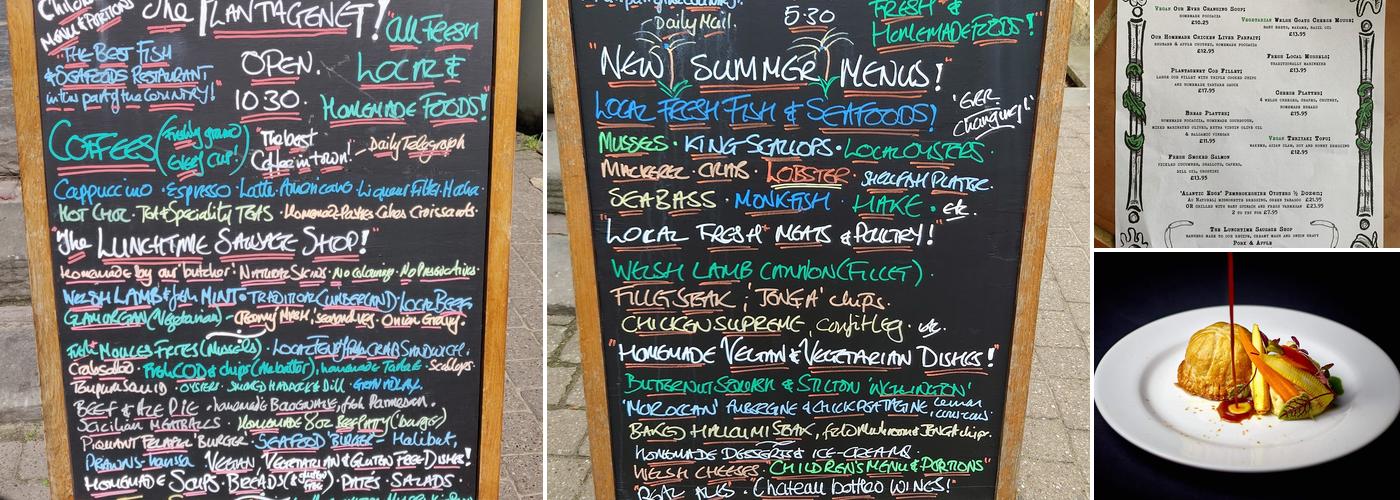 Menu & PORTIONS
The PLANTAGENET!
"All FRESH
LOCAL &
HOMEMADE FOODS!"
"THE BEST FISH
& SEAFOODS RESTAURANT
in this part of the COUNTRY!"
OPEN.
10 30.
COFFEES (Freshly ground
every cup!)
"The best
Coffee in town!" - Daily Telegraph
Cappuccino · Espresso · Latte · Americano · Liqueur · Filter · Mocha
HOT CHOC · TEA & Speciality TEAS · Homemade Pastries Cakes Croissants
"The LUNCHTIME SAUSAGE SHOP!"
homemade by our butcher · NATURAL SKINS · No Colourings · NO PRESERVATIVES
WELSH LAMB & fresh MINT · TRADITIONAL CUMBERLAND · LOCAL BEEF
GLAMORGAN (Vegetarian) - CREAMY MASH, seasonal VEG · Onion Gravy.
MOULES FRITES (Mussels) · CRAB SANDWICH
Fresh COD & chips, homemade Tartare · Scallops
BEEF & ALE PIE · homemade BOLOGNAISE, fresh Parmesan.
Sicilian MEATBALLS · HOMEMADE 8oz BEEF PATTY (burger)
PIQUANT FALAFEL 'BURGER' · SEAFOOD BURGER - Halibut,
PRAWNS · VEGAN, VEGETARIAN & GLUTEN FREE DISHES!
HOMEMADE SOUPS · BREADS (& gluten free) · PATES · SALADS ·
Daily Mail.
5.30
FRESH &
HOMEMADE FOODS!"
"NEW SUMMER MENUS!"
LOCAL FRESH FISH & SEAFOODS!
'EVER
Changing!'
MUSSELS · KING SCALLOPS · LOCAL OYSTERS ·
MACKEREL · CRAB · LOBSTER · SHELLFISH PLATTER.
SEABASS · MONKFISH · HAKE · etc.
"LOCAL FRESH MEATS & POULTRY!"
WELSH LAMB CANNON (FILLET) ·
FILLET STEAK, 'JENGA' chips.
CHICKEN SUPREME, confit leg · etc.
"HOMEMADE VEGAN & VEGETARIAN DISHES!"
BUTTERNUT SQUASH & STILTON 'WELLINGTON'
'MOROCCAN' AUBERGINE & CHICKPEA TAGINE, lemon couscous.
BAKED HALLOUMI STEAK, field mushroom & JENGA chips.
HOMEMADE DESSERTS & ICE-CREAMS.
WELSH CHEESES · CHILDREN'S MENU & PORTIONS"
"REAL ALES · "Chateau bottled WINES!"
Vegan Our Ever Changing Soup;
homemade focaccia
£10.25
Vegetarian Welsh Goats Cheese Mousse;
baby beets, wakame, basil oil
£13.95
Our Homemade Chicken Liver Parfait;
rhubarb & apple chutney, homemade focaccia
£12.95
Fresh Local Mussels;
traditionally marinière
£13.95
Plantagenet Cod Fillet;
large cod fillet with triple cooked chips
and homemade tartare sauce
£17.95
Cheese Platter;
4 welsh cheeses, grapes, chutney,
homemade bread
£15.95
Bread Platter;
homemade focaccia, homemade sourdough,
mixed marinated olives, extra virgin olive oil
& balsamic vinegar
£11.95
Vegan Teriyaki Tofu;
wakame, asian slaw, soy and honey dressing
£12.95
Fresh Smoked Salmon
pickled cucumber, shallots, capers,
dill oil, crostini
£13.95
'Atlantic Edge' Pembrokeshire Oysters ½ Dozen;
Au Naturel; mignonette dressing, green tabasco £21.95
OR grilled with baby spinach and fresh parmesan £23.95
2 to try for £7.95
The Lunchtime Sausage Shop
bangers made to our recipe, creamy mash and onion gravy
Pork & Apple